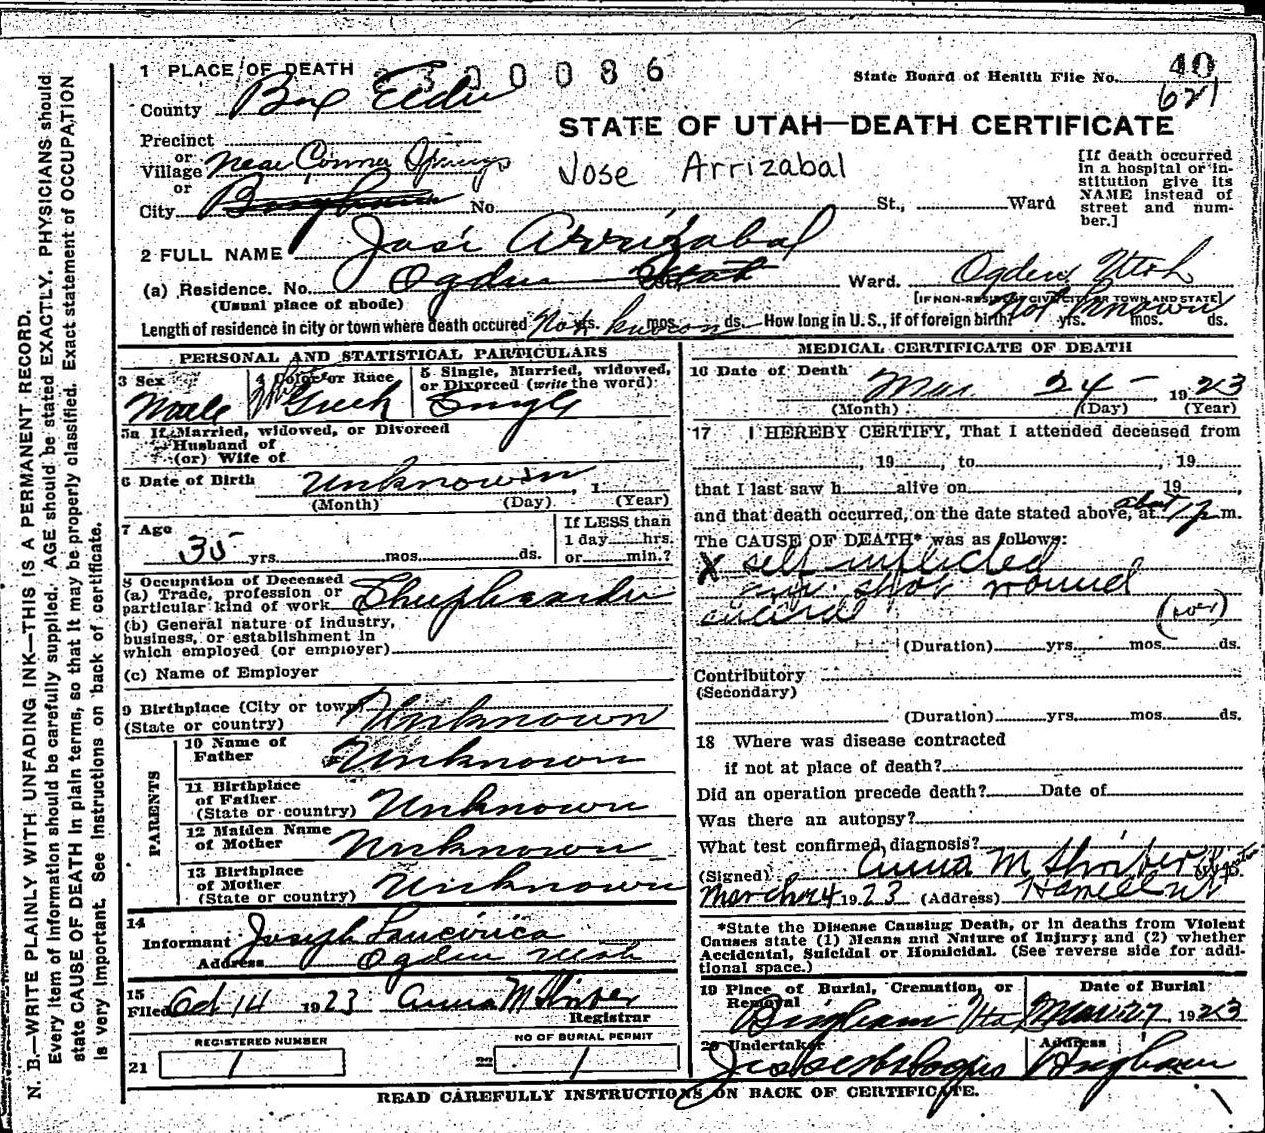 1 PLACE OF DEATH 2300086
State Board of Health File No. 40
621
County Box Elder
STATE OF UTAH—DEATH CERTIFICATE
Precinct
or
Village Near Connor Springs
or
City Brigham No. St., Ward
Jose Arrizabal
[If death occurred in a hospital or in-stitution give its NAME instead of street and num-ber.]
2 FULL NAME José Arrizabal
(a) Residence. No. Ogden Utah Ward. Ogden, Utah
(Usual place of abode) [IF NON-RESIDENT GIVE CITY OR TOWN AND STATE]
Length of residence in city or town where death occured Not known yrs. mos. ds. How long in U. S., if of foreign birth? Not known yrs. mos. ds.
PERSONAL AND STATISTICAL PARTICULARS
3 Sex Male
4 Color or Race Greek
5 Single, Married, widowed, or Divorced (write the word) Single
5a If Married, widowed, or Divorced
Husband of
(or) Wife of
6 Date of Birth Unknown, 1
(Month) (Day) (Year)
7 Age 35 yrs. mos. ds.
If LESS than
1 day hrs.
or min.?
8 Occupation of Deceased
(a) Trade, profession or
particular kind of work Sheepherder
(b) General nature of industry,
business, or establishment in
which employed (or employer)
(c) Name of Employer
9 Birthplace (City or town)
(State or country) Unknown
PARENTS
10 Name of
Father Unknown
11 Birthplace
of Father
(State or country) Unknown
12 Maiden Name
of Mother Unknown
13 Birthplace
of Mother
(State or country) Unknown
14
Informant Joseph
Address Ogden Utah
15
Filed Oct 14 1923 Anna M Shriber
Registrar
REGISTERED NUMBER
21 1
NO OF BURIAL PERMIT
22 1
MEDICAL CERTIFICATE OF DEATH
16 Date of Death Mar. 24 - 1923
(Month) (Day) (Year)
17 I HEREBY CERTIFY, That I attended deceased from
, 19 , to , 19
that I last saw h alive on 19 ,
and that death occurred, on the date stated above, at about 12 p m.
The CAUSE OF DEATH* was as follows:
X self inflicted
gun shot wound
(over)
(Duration) yrs. mos. ds.
Contributory
(Secondary)
(Duration) yrs. mos. ds.
18 Where was disease contracted
if not at place of death?
Did an operation precede death? Date of
Was there an autopsy?
What test confirmed diagnosis?
(Signed) Anna M Shriber
March 24 1923 (Address) Hansel Ut
*State the Disease Causing Death, or in deaths from Violent
Causes state (1) Means and Nature of Injury; and (2) whether
Accidental, Suicidal or Homicidal. (See reverse side for addi-
tional space.)
19 Place of Burial, Cremation, or
Removal Brigham Utah
Date of Burial
Mar 27 1923
20 Undertaker
Address Brigham
READ CAREFULLY INSTRUCTIONS ON BACK OF CERTIFICATE.
N. B.—WRITE PLAINLY WITH UNFADING INK—THIS IS A PERMANENT RECORD.
Every item of information should be carefully supplied. AGE should be stated EXACTLY. PHYSICIANS should
state CAUSE OF DEATH in plain terms, so that it may be properly classified. Exact statement of OCCUPATION
is very important. See instructions on back of certificate.